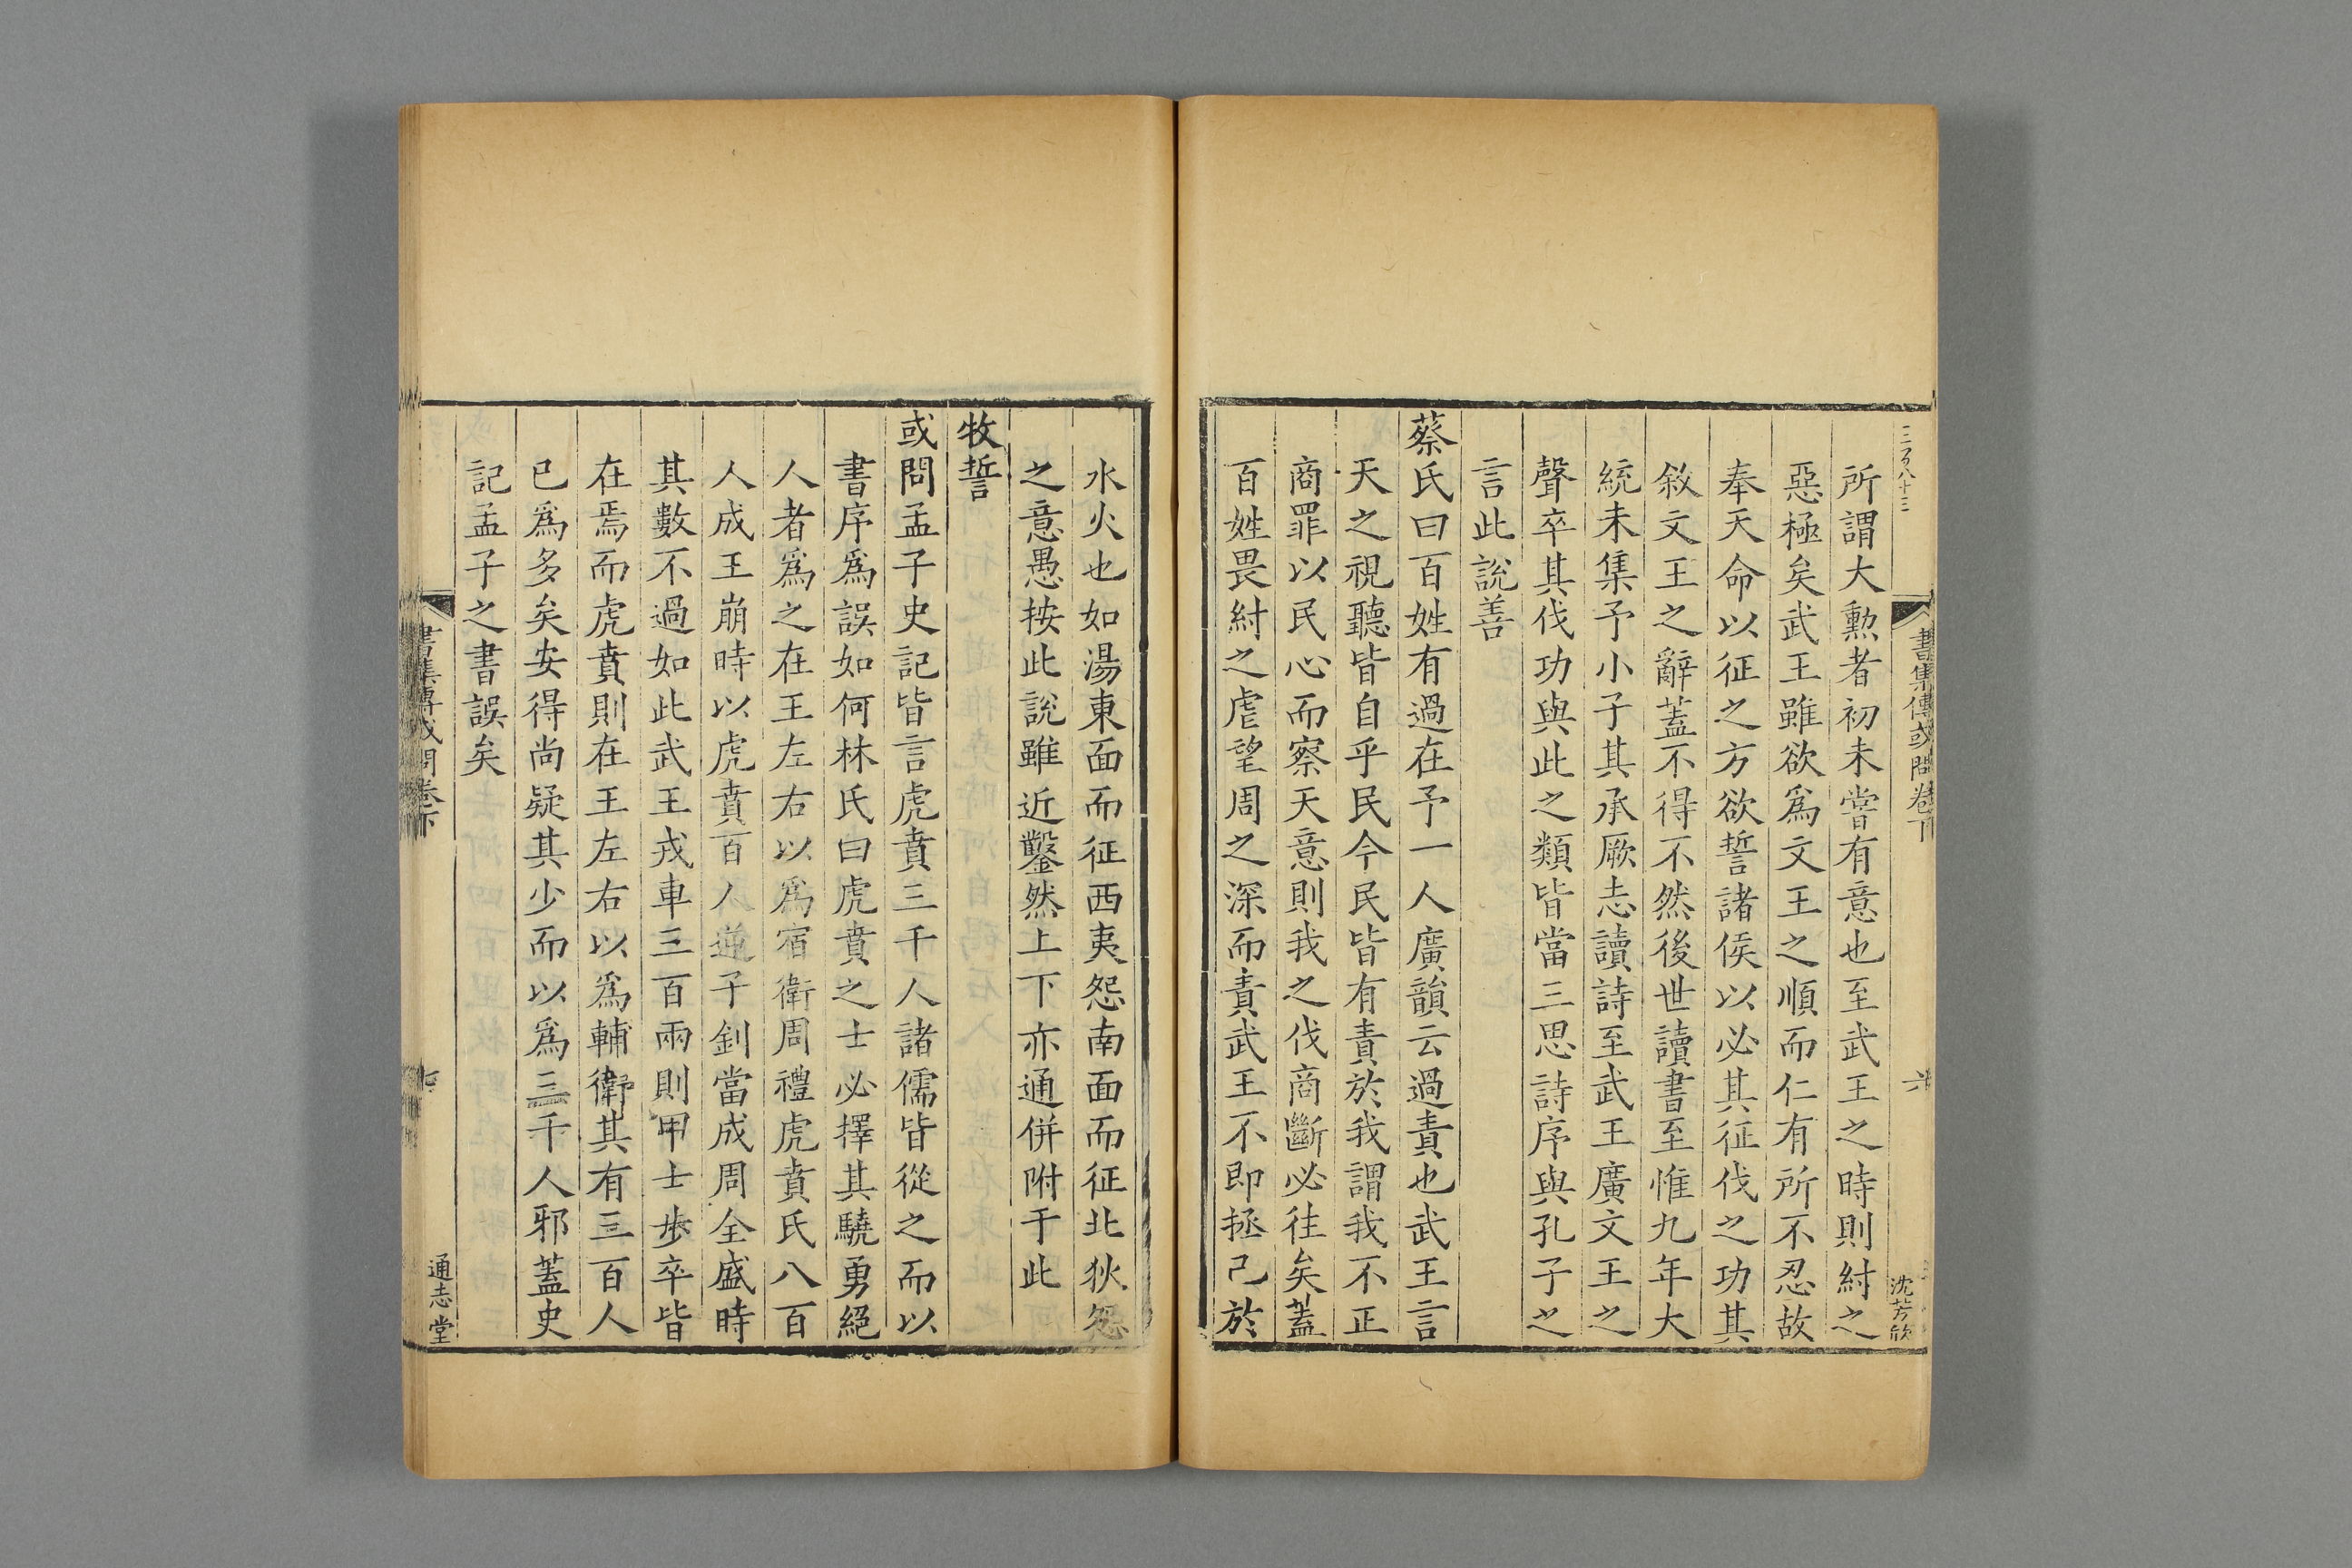 書集傳或問卷下
六
沈芳欣
所謂大勲者初未嘗有意也至武王之時則紂之
惡極矣武王雖欲爲文王之順而仁有所不忍故
奉天命以征之方欲誓諸侯以必其征伐之功其
敘文王之辭葢不得不然後世讀書至惟九年大
統未集予小子其承厥志讀詩至武王廣文王之
聲卒其伐功與此之類皆當三思詩序與孔子之
言此說善
蔡氏曰百姓有過在予一人廣韻云過責也武王言
天之視聽皆自乎民今民皆有責於我謂我不正
商罪以民心而察天意則我之伐商斷必往矣葢
百姓畏紂之虐望周之深而責武王不即拯己於
水火也如湯東面而征西夷怨南面而征北狄怨
之意愚按此說雖近鑿然上下亦通併附于此
牧誓
或問孟子史記皆言虎賁三千人諸儒皆從之而以
書序爲誤如何林氏曰虎賁之士必擇其驍勇絕
人者爲之在王左右以爲宿衛周禮虎賁氏八百
人成王崩時以虎賁百人逆子釗當成周全盛時
其數不過如此武王戎車三百兩則甲士步卒皆
在焉而虎賁則在王左右以爲輔衛其有三百人
已爲多矣安得尚疑其少而以爲三千人邪葢史
記孟子之書誤矣
書集傳或問卷下
通志堂